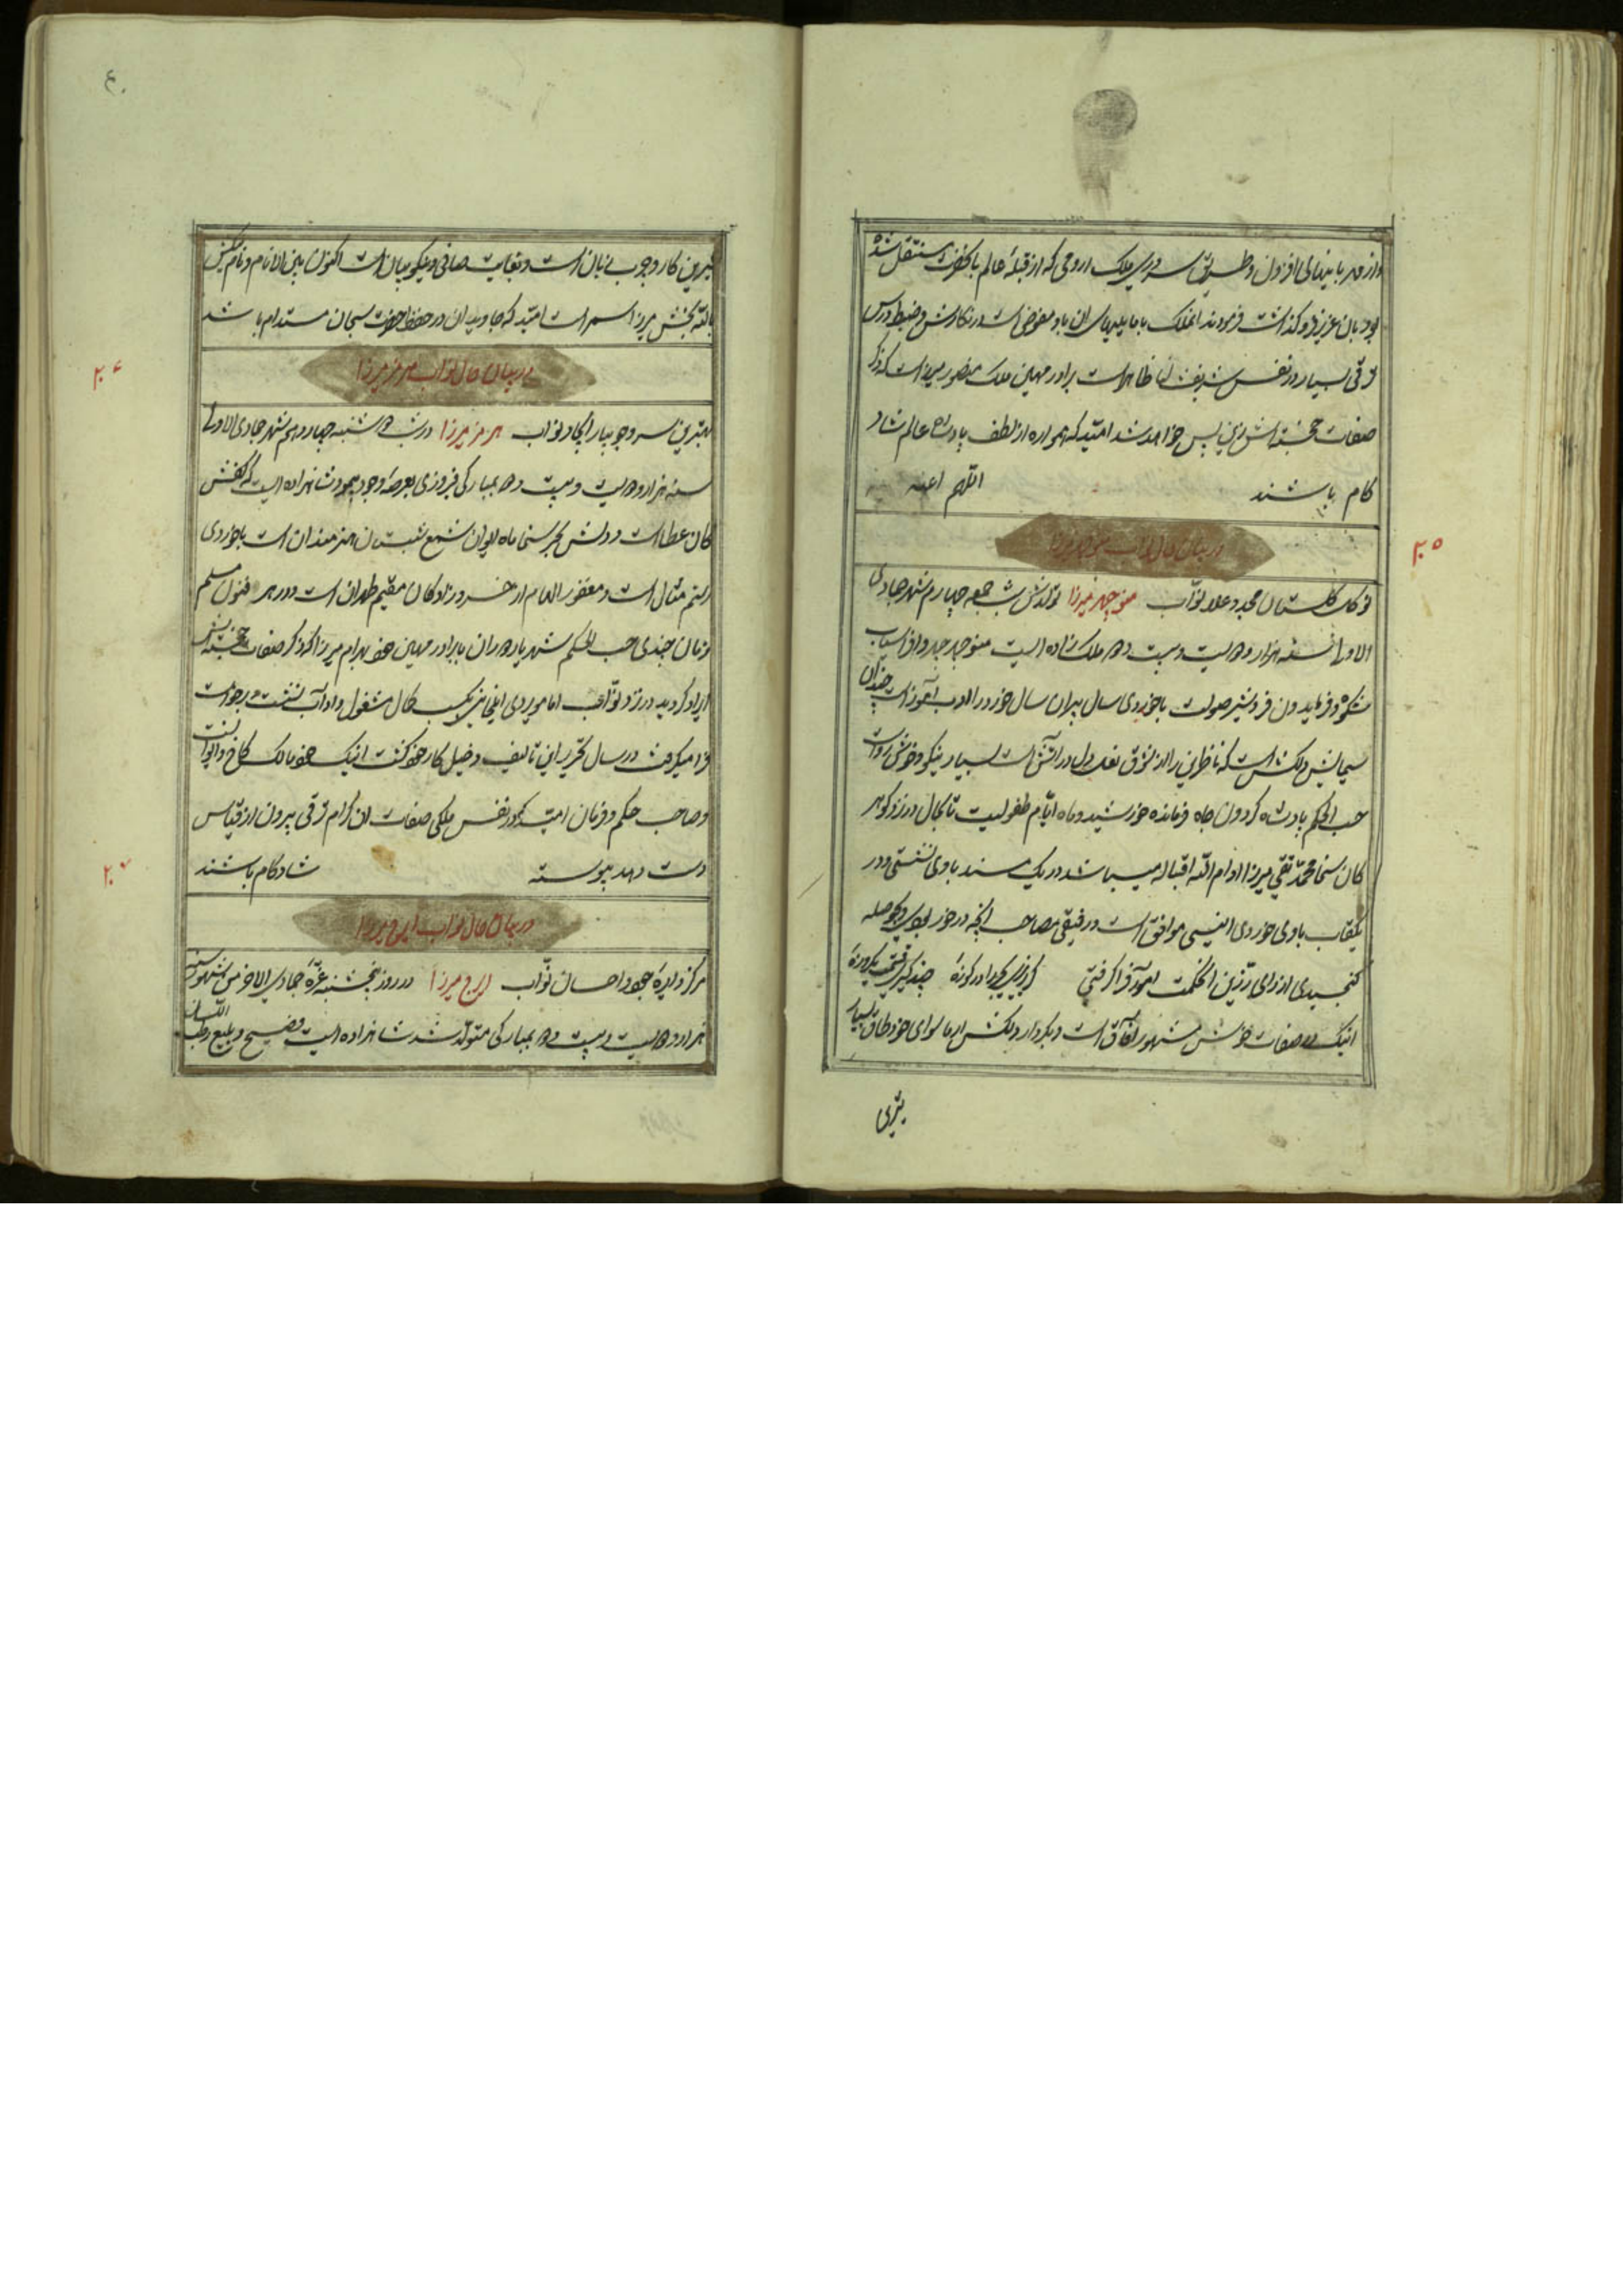 واز مهر با بینهای افزون و طریق سروری ملک ارومی که از قبلهٔ عالم با کفرت منتقل شده
بود بان عزیز فرو گذاشت فرمودند انملک با مایلیهای ان باو مفوض است در نگارش و ضبط و درس
ترقی بسیار در نفس شریف انها ظاهر است برادر مهین ملک منصور میرزا است که ذکر
صفات خجسته‌اش زین پس خواهد شد امید که همواره از لطف پادشاه عالم شاد
کام باشند اللهم اعنه
در بیان حال نواب منوچهر میرزا
۲۰۵
نوگل گلستان مجد و علا نواب منوچهر میرزا تولدش شب جمعه چهارم شهر جمادی
الاولی سنه هزار و دویست و بیست و ده ملک زاده ایست منوچهر چهر و افراسیاب
شکوه و فریدون فر و شیر صولت با خوردی سال پیران سال خورد را ادب آموز است چندان
سیمایش دلکش است که ناظرین را از شوق نعل دل در آتش است بسیار نیکو و خوش رو است
حسب الحکم پادشاه گردون جاه فرمانده خورشید و ماه ایام طفولیت تا بحال در نزد گوهر
کان سخا محمد تقی میرزا ادام الله اقباله میباشد در یک مسند باوی نشستی و در
یکقاب باوی خوردی انیسی موافق است و رفیقی مصاحب آنچه در خور بودی و بحوصله
گنجیدی از رای رزین انحکمت آموز فرا گرفتی
اینک در صفات خوش مشهور آفاق است و بکردار دلکش از ماسوای خود طاق بسیار
بترین
۴۰
بترین کار و جوب بی زبان است و بغایت صافی و نیکو بیان است اکنون بین الانام و نام نکین
بالله بخش میرزا سمر است امید که جاویدان در حفظ حضرت سبحان مستدام باشد
در بیان حال نواب هرمز میرزا
۲۰۶
بهترین سرو جویبار ایجاد نواب هرمز میرزا در شب دوشنبه چهاردهم شهر جمادی الاولی
سنه هزار و دویست و بیست و ده بمبارکی فیروزی بعرصهٔ وجود پیمود شاهزاده ایست که کفش
کان عطا است و دلش بحر سخا ماه ایوان شمع شبستان هنرمندان است با خوردی
رستم مثال است و مغفور العام از خسرو زادگان مقیم طهران است و در هر فنون مسلم
زمان چندی حسب الحکم شهریار دوران با برادر مهین خود بهرام میرزا که ذکر صفات خجسته‌اش
ایراد گردید در نزد نواب امامویردی ایلخانی بکسب کمال مشغول و اداب نشست و برخواست
فرا میگرفت در سال تحریر این تالیف دخیل کار خود گشت اینک خود مالک کاخ و ایوان است
و صاحب حکم و فرمان امید که در نفس ملکی صفات ان کرام ترقی بیرون از قیاس
دست دهد پیوسته شادکام باشند
در بیان حال نواب ایرج میرزا
۲۰۷
مرکز دایرهٔ جود و احسان نواب ایرج میرزا در روز پنجشنبه غرهٔ جمادی الاخر من شهور سنه
هزار و دویست و بیست و ده بمبارکی متولد شد شاهزاده ایست فصیح و بلیغ و رطب اللسان